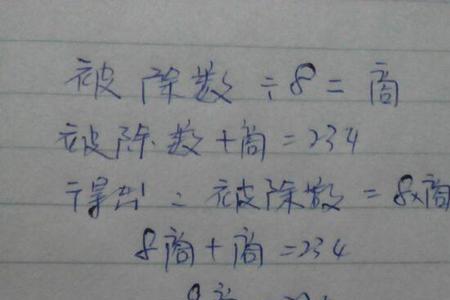 被除数÷8=商
被除数+商=234
得出:被除数=8×商
8商+商=234